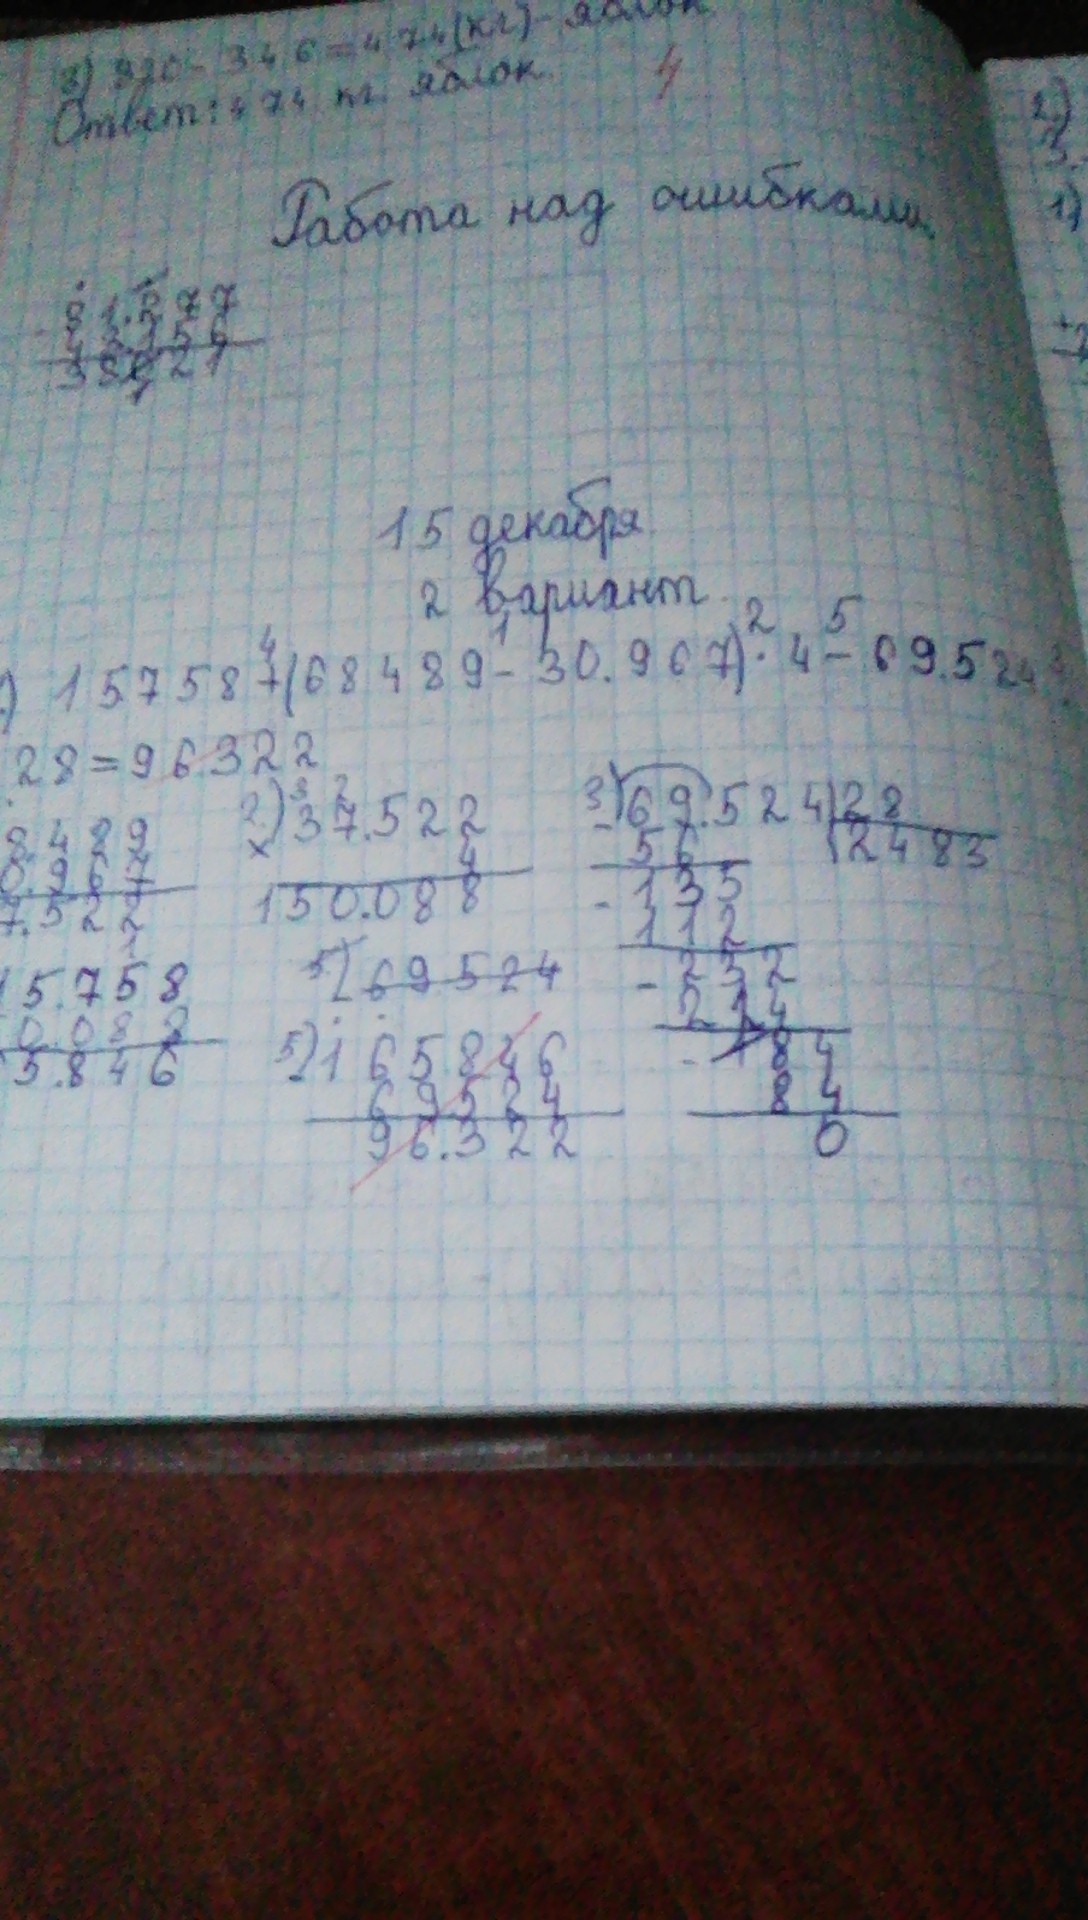 3) 920 - 346 = 474 (кг) - яблок
Ответ: 474 кг. яблок.
4
Работа над ошибками.
81.577
321
15 декабря
2 вариант
) 15758 + (68489 - 30.967) · 4 - 69.524
4 1 2 5 3
28 = 96.322
8489
0.967
7.522
2) 37.522
3 2
× 4
150.088
3) 69.524 | 28
2483
- 56
- 135
112
- 232
224
- 84
84
0
1
15.758
0.088
5.846
5) 69524
5) 165846
69524
96.322
2)
3.
1)